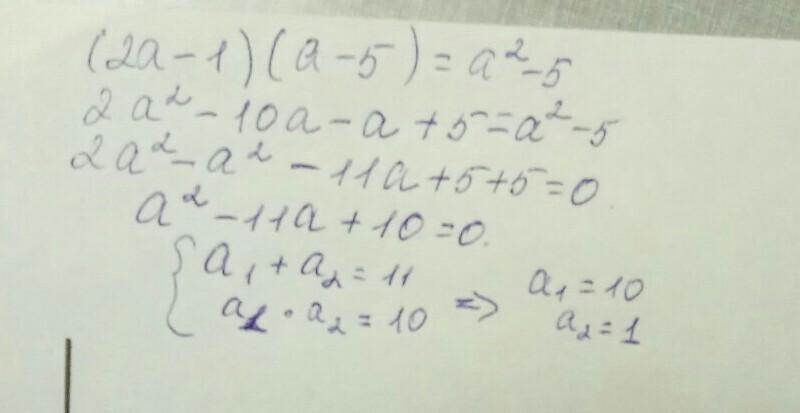 (2a-1)(a-5)=a²-5
2a²-10a-a+5=a²-5
2a²-a²-11a+5+5=0.
a²-11a+10=0.
{a₁+a₂=11
a₁·a₂=10 => a₁=10
a₂=1